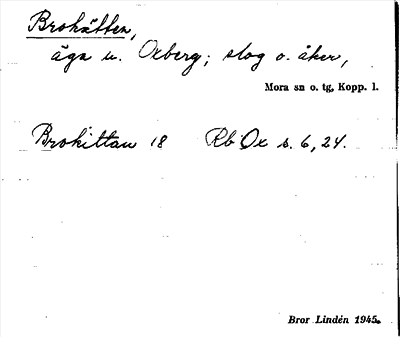 Brohätten,
äga u. Oxberg; slog o. åker,
Mora sn o. tg, Kopp. l.
Brohittan 18 Rb Ox s. 6, 24.
Bror Lindén 1945.